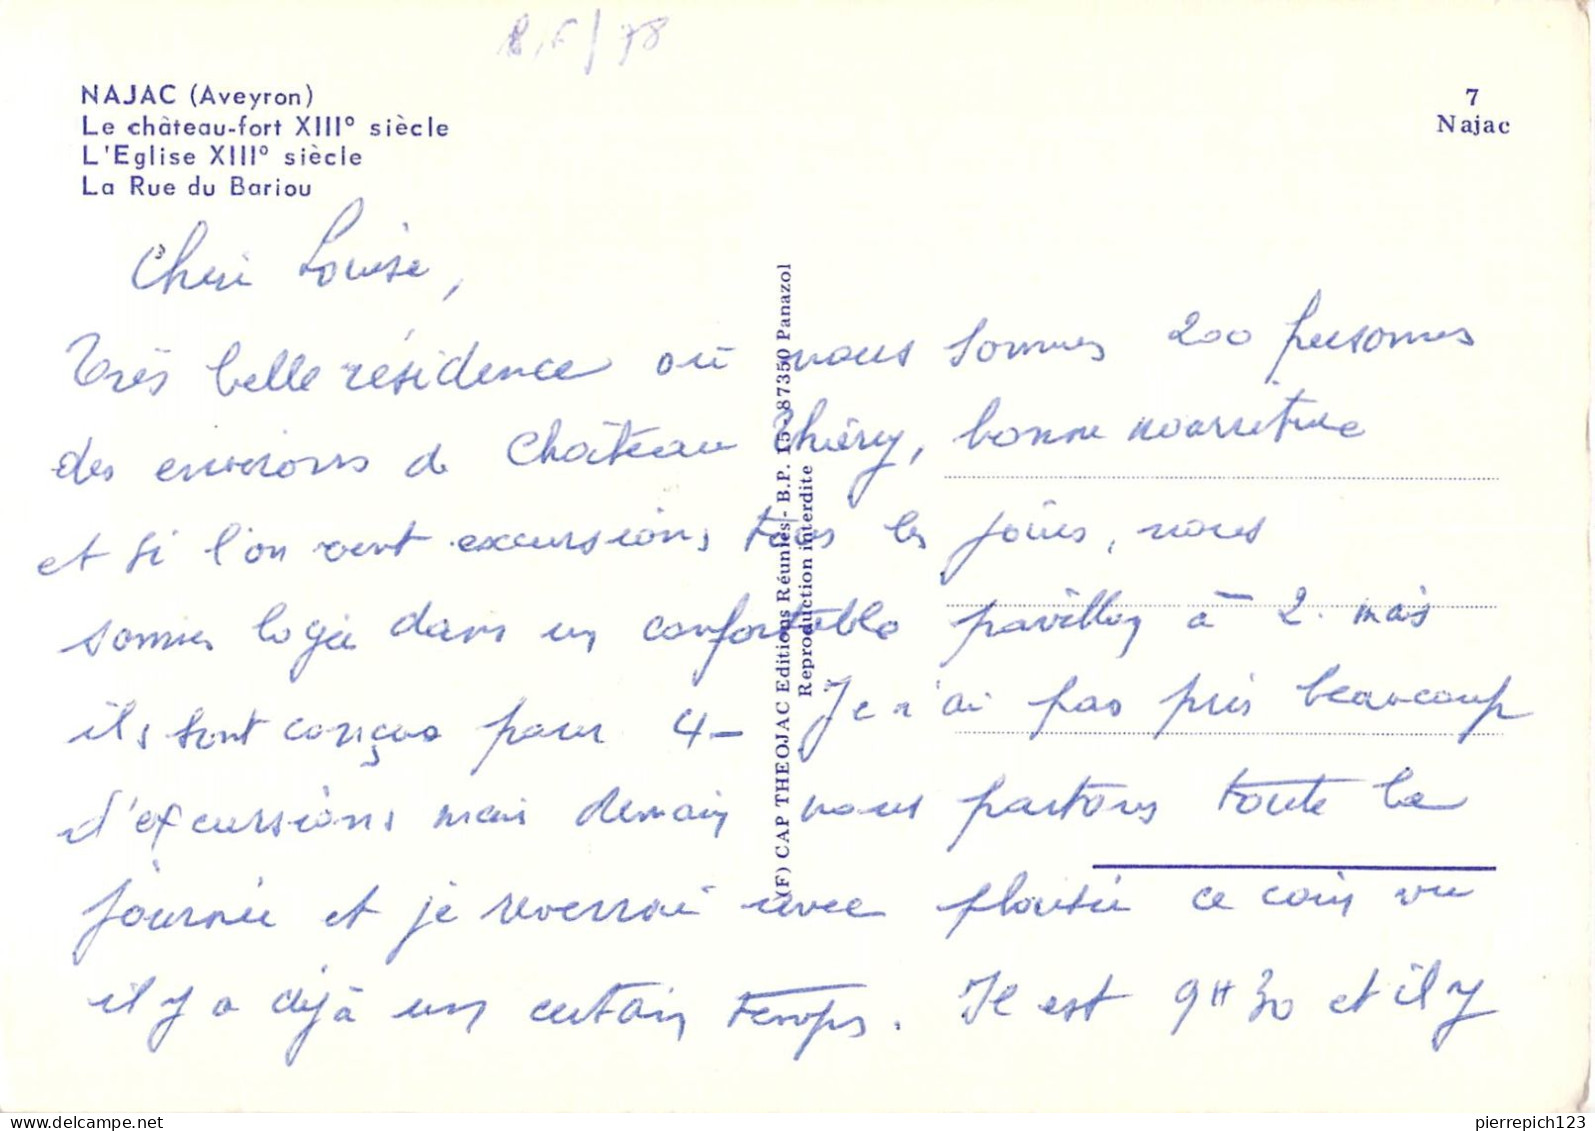 /78
NAJAC (Aveyron)
Le château-fort XIII° siècle
L'Eglise XIII° siècle
La Rue du Bariou
7
Najac
Cheri Louise,
Très belle résidence où nous sommes 200 personnes
des environs de Château Thiéry, bonne nourriture
et si l'on veut excursions tous les jours, nous
sommes logée dans un confortable pavillon à 2. mais
ils sont conçus pour 4 - Je n'ai pas pris beaucoup
d'excursions mais demain nous partons toute la
journée et je reverrai avec plaisir ce coin vu
il y a déjà un certain temps. Il est 9H30 et il y
(F) CAP THEOJAC Editions Réunies - B.P. 15 - 87350 Panazol
Reproduction interdite
pierrepich123